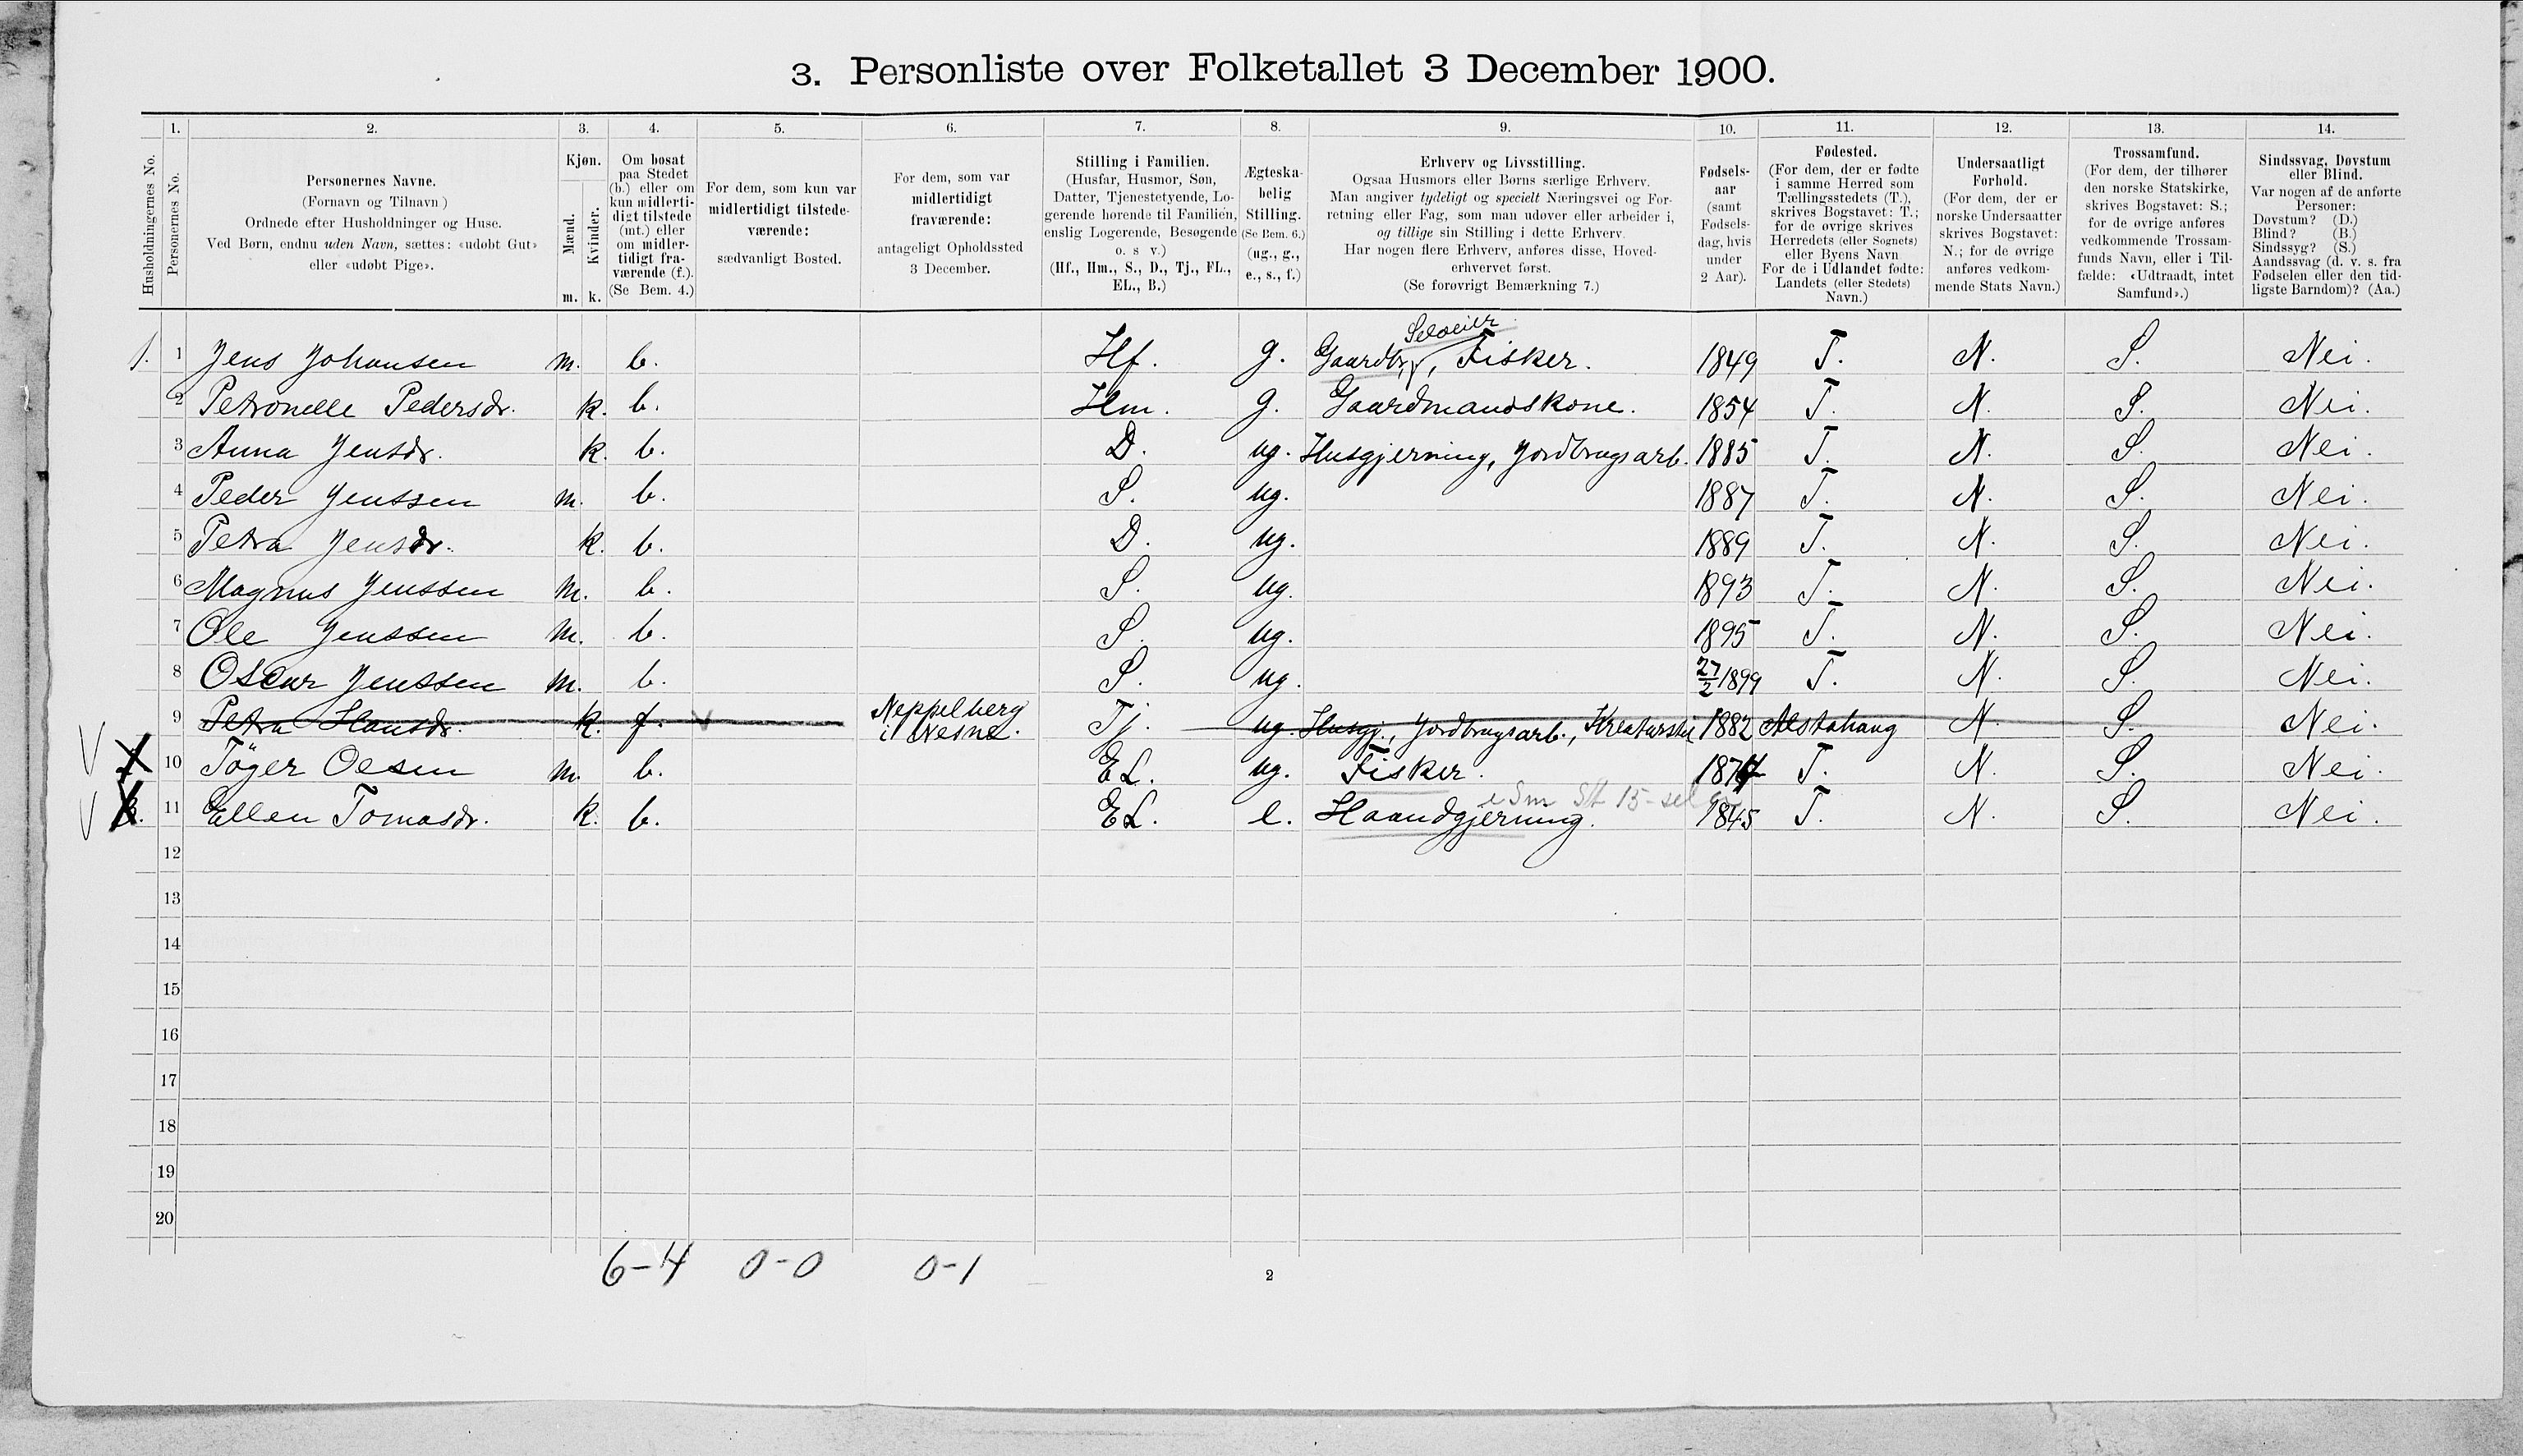 3. Personliste over Folketallet 3 December 1900.
1. 2. 3. 4. 5. 6. 7. 8. 9. 10. 11. 12. 13. 14.
Husholdningernes No.
Personernes No.
Personernes Navne.
(Fornavn og Tilnavn)
Ordnede efter Husholdninger og Huse.
Ved Børn, endnu uden Navn, sættes: «udøbt Gut»
eller «udøbt Pige».
Kjøn.
Mænd.
Kvinder.
m. k.
Om bosat
paa Stedet
(b.) eller om
kun midlerti-
digt tilstede
(mt.) eller
om midler-
tidigt fra-
værende (f.).
(Se Bem. 4.)
For dem, som kun var
midlertidigt tilstede-
værende:
sædvanligt Bosted.
For dem, som var
midlertidigt
fraværende:
antageligt Opholdssted
3 December.
Stilling i Familien.
(Husfar, Husmor, Søn,
Datter, Tjenestetyende, Lo-
gerende hørende til Familien,
enslig Logerende, Besøgende
o. s v.)
(Hf., Hm., S., D., Tj., FL.,
EL., B.)
Ægteska-
belig
Stilling.
(Se Bem. 6.)
(ug., g.,
e., s., f.)
Erhverv og Livsstilling.
Ogsaa Husmors eller Børns særlige Erhverv.
Man angiver tydeligt og specielt Næringsvei og For-
retning eller Fag, som man udøver eller arbeider i,
og tillige sin Stilling i dette Erhverv.
Har nogen flere Erhverv, anføres disse, Hoved-
erhvervet først.
(Se forøvrigt Bemærkning 7.)
Fødsels-
aar
(samt
Fødsels-
dag, hvis
under
2 Aar).
Fødested.
(For dem, der er fødte
i samme Herred som
Tællingsstedets (T.),
skrives Bogstavet: T.;
for de øvrige skrives
Herredets (eller Sognets)
eller Byens Navn.
For de i Udlandet fødte:
Landets (eller Stedets)
Navn.)
Undersaatligt
Forhold.
(For dem, der er
norske Undersaatter
skrives Bogstavet:
N.; for de øvrige
anføres vedkom-
mende Stats Navn.)
Trossamfund.
(For dem, der tilhører
den norske Statskirke,
skrives Bogstavet: S.;
for de øvrige anføres
vedkommende Trossam-
funds Navn, eller i Til-
fælde: «Udtraadt, intet
Samfund».)
Sindssvag, Døvstum
eller Blind.
Var nogen af de anførte
Personer:
Døvstum? (D.)
Blind? (B.)
Sindssyg? (S.)
Aandssvag (d. v. s. fra
Fødselen eller den tid-
ligste Barndom)? (Aa.)
Selveier
1. 1 Jens Johansen m. b. Hf. g. Gaardbr., Fisker. 1849 T. N. S. Nei.
2 Petronelle Pedersdr. k. b. Hm. g. Gaardmandskone. 1854 T. N. S. Nei.
3 Anna Jensdr. k. b. D. ug. Husgjerning, Jordbrugsarb. 1885 T. N. S. Nei.
4 Peder Jenssen m. b. S. ug. 1887 T. N. S. Nei.
5 Petra Jensdr. k. b. D. ug. 1889 T. N. S. Nei.
6 Magnus Jenssen m. b. S. ug. 1893 T. N. S. Nei.
7 Ole Jenssen m. b. S. ug. 1895 T. N. S. Nei.
8 Oscar Jenssen m. b. S. ug. 27/2 1899 T. N. S. Nei.
9 Petra Hansdr. k. f. Neppelberg i Nesne. Tj. ug. Husgj., Jordbrugsarb., Kreaturstel 1882 Alstahaug N. S. Nei.
10 Töger Olsen m. b. EL. ug. Fisker. 1874 T. N. S. Nei.
11 Ellen Tomasdr. k. b. EL. e. Haandgjerning. 1845 T. N. S. Nei.
12
13
14
15
16
17
18
19
20
6-4 0-0 0-1
2